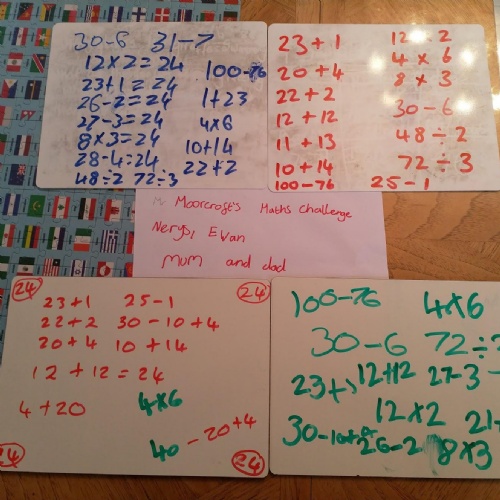 30-6 31-7
12×2=24
100-76
23+1=24
1+23
26-2=24
27-3=24
4×6
8×3=24
10+14
28-4=24
22+2
48÷2 72÷3
23+1
20+4
22+2
12+12
11+13
10+14
100-76
4×6
8×3
30-6
48÷2
72÷3
25-1
Moorcroft's Maths Challenge
Nerys, Evan
Mum and dad
24
24
23+1 25-1
22+2 30-10+4
20+4 10+14
12+12=24
4+20
4×6
40-20+4
24
24
100-76 4×6
30-6 72÷
23+1 12+12 27-3
12×2
30-10+4
26-2 8×3